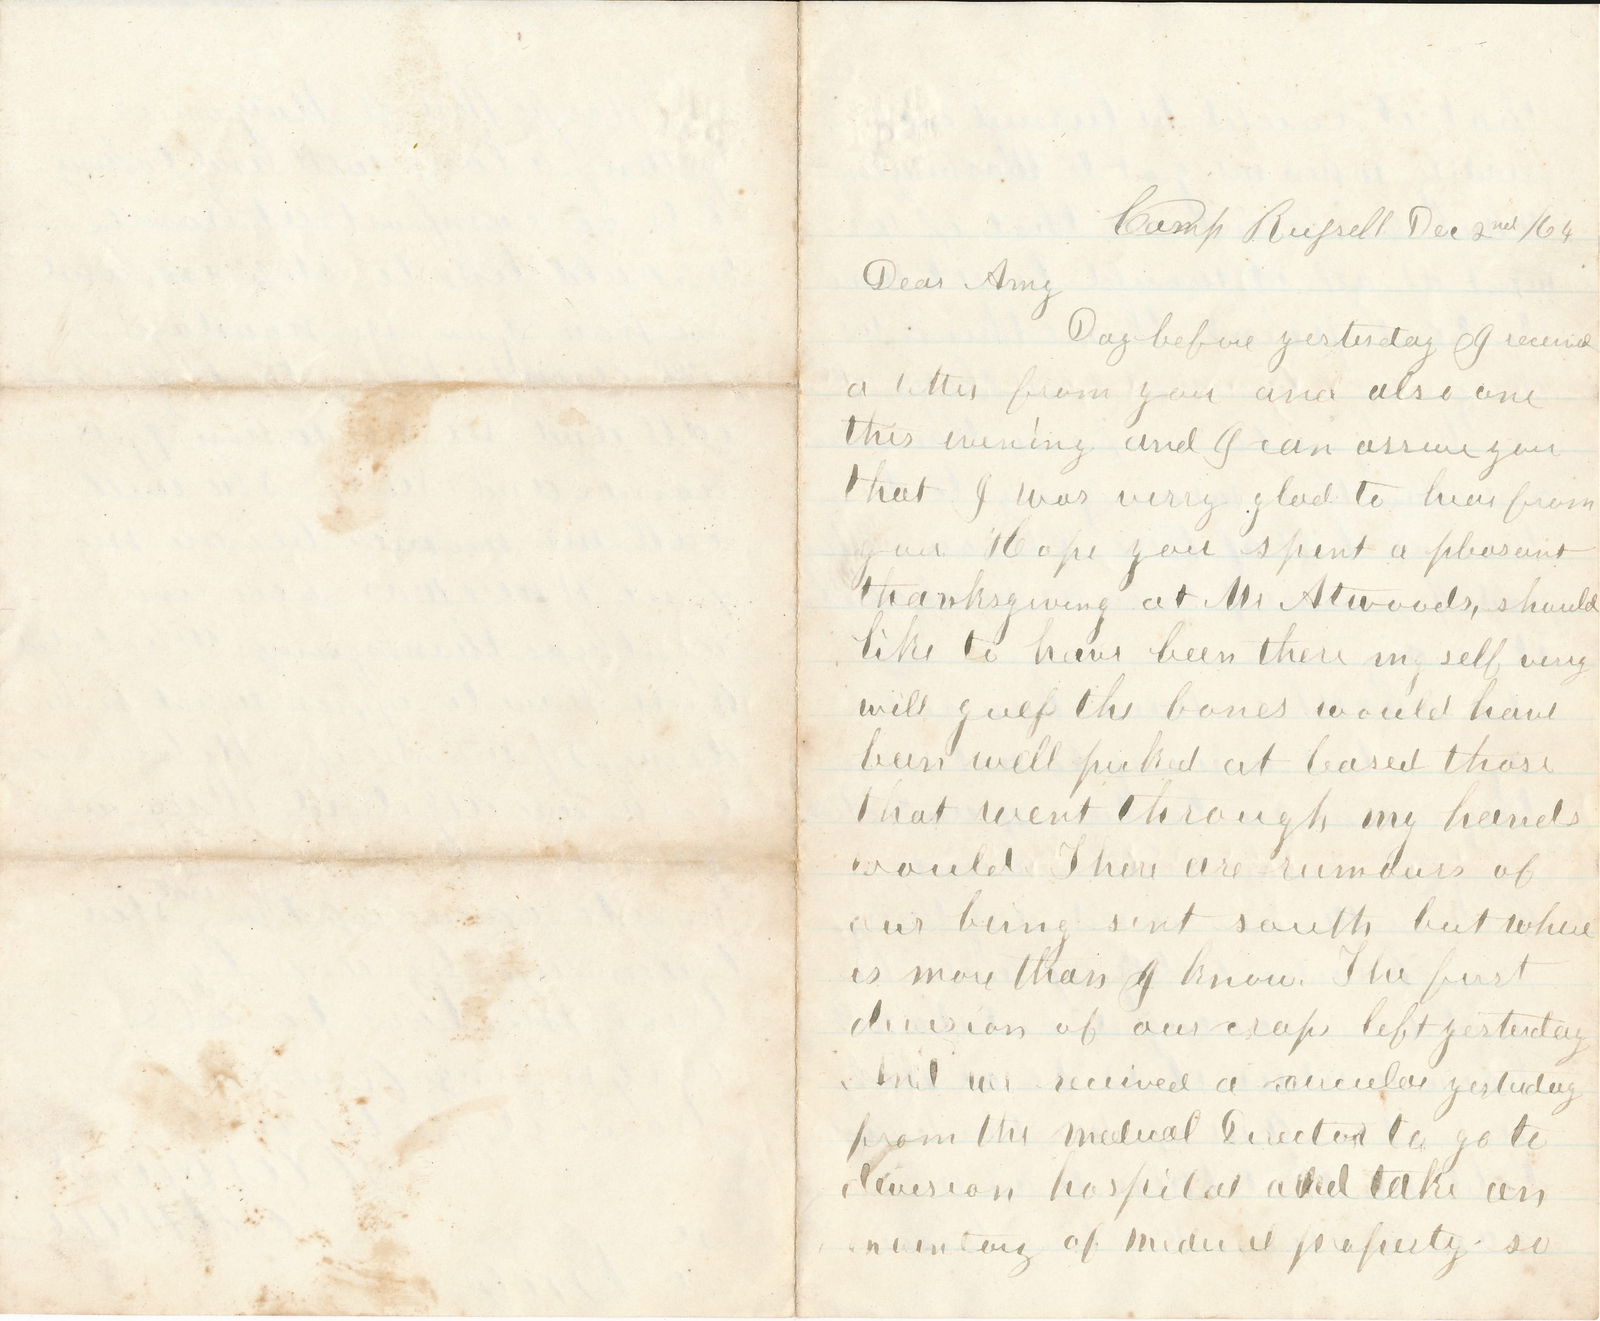 Camp Russell Dec 2nd /64
Dear Amy
Day before yesterday I received
a letter from you and also one
this evening and I can assure you
that I was verry glad to hear from
you Hope you spent a pleasant
thanksgiving at Mr Atwoods, should
like to have been there my self very
well guess the bones would have
been well picked at leased those
that went through my hands
would. There are rumours of
our being sent south but where
is more than I know. The first
division of our corps left yesterday
And we received a circular yesterday
from the Medical Director to go to
division hospital and take an
inventory of medical property so